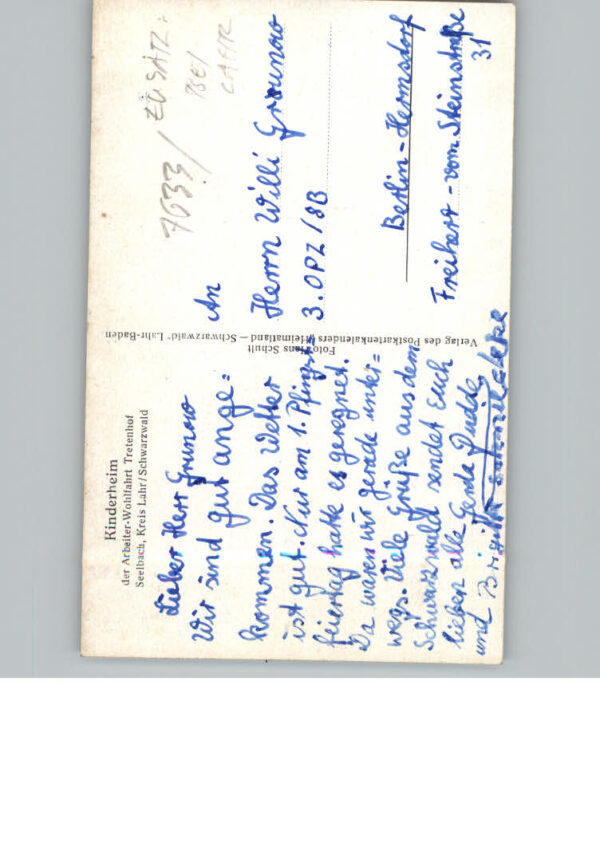 Kinderheim
der Arbeiter-Wohlfahrt Tretenhof
Seelbach, Kreis Lahr/Schwarzwald
Lieber Herr Grunow
Wir sind gut ange=
kommen. Das Wetter
ist gut. Nur am 1. Pfingst=
feiertag hatte es geregnet.
Da waren wir gerade unter=
wegs. Viele Grüße aus dem
Schwarzwald sendet Euch
lieben alle Gerda
und Brigitte
Foto Hans Schult
Verlag des Postkartenkalenders „Heimatland“ — „Schwarzwald“ Lahr-Baden
7633/
ZUSATZ:
BEI
LAHR
An
Herrn Willi Grunow
3. OPZ/8B
Berlin-Hermsdorf
Freiherr-vom Steinstraße
31